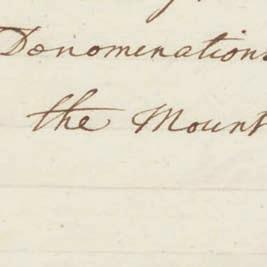 Denomenations
the Mount